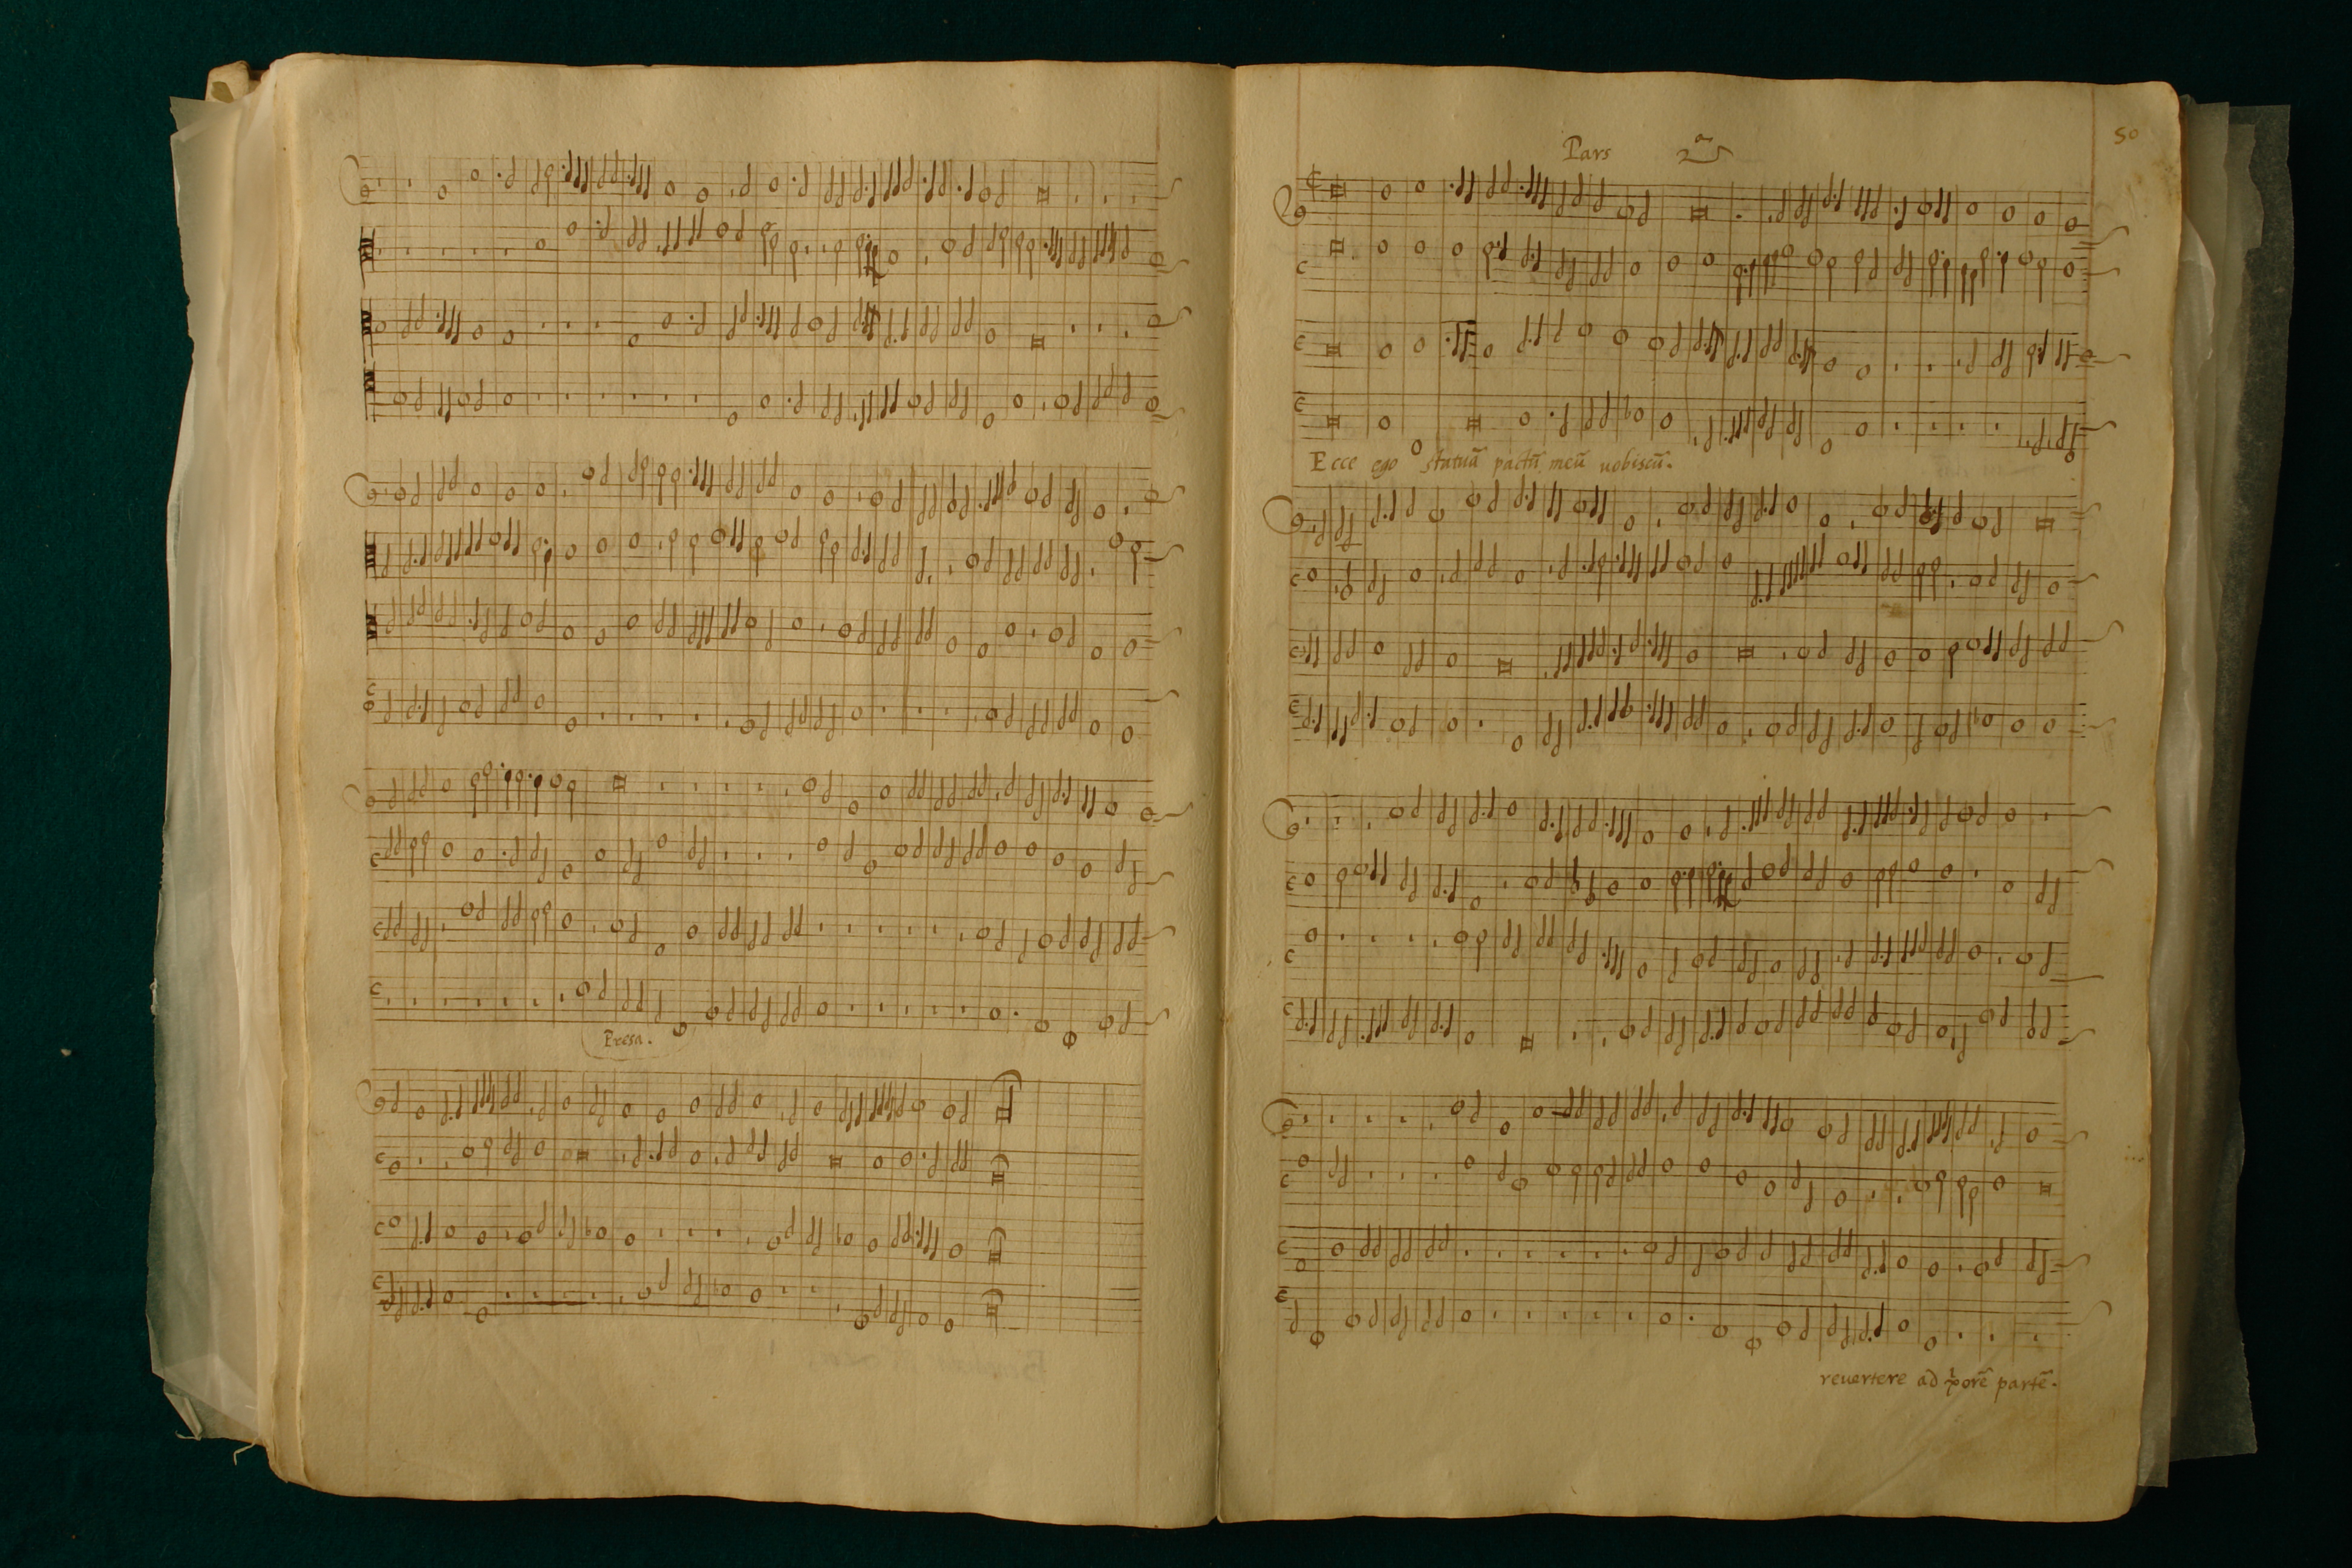 Presa.
50
Pars 2a
Ecce ego statuā pactū meū uobiscū.
reuertere ad partē.